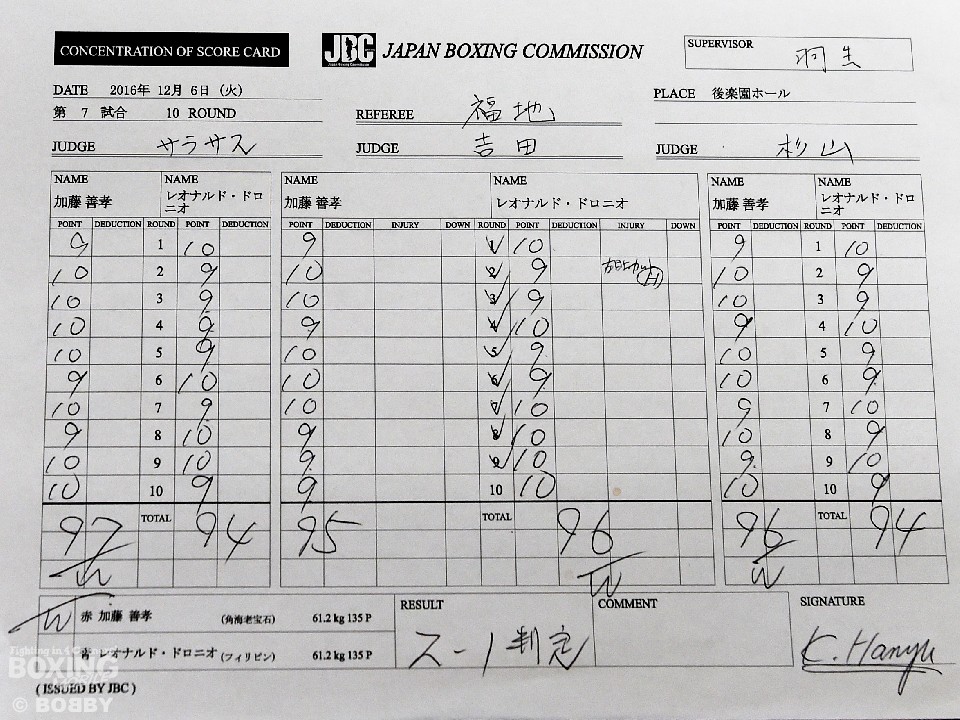 CONCENTRATION OF SCORE CARD
JBC JAPAN BOXING COMMISSION
SUPERVISOR 羽生
DATE 2016年 12月 6日 (火)
PLACE 後楽園ホール
第 7 試合 10 ROUND
REFEREE 福地
JUDGE サラサス
JUDGE 吉田
JUDGE 杉山
NAME NAME NAME NAME NAME NAME
加藤 善孝 レオナルド・ドロニオ 加藤 善孝 レオナルド・ドロニオ 加藤 善孝 レオナルド・ドロニオ
POINT DEDUCTION ROUND POINT DEDUCTION POINT DEDUCTION INJURY DOWN ROUND POINT DEDUCTION INJURY DOWN POINT DEDUCTION ROUND POINT DEDUCTION
9 1 10 9 1 10 9 1 10
10 2 9 10 2 9 (H) 10 2 9
10 3 9 10 3 9 10 3 9
10 4 9 9 4 10 9 4 10
10 5 9 10 5 9 10 5 9
9 6 10 10 6 9 10 6 9
10 7 9 10 7 10 9 7 10
9 8 10 9 8 10 10 8 9
10 9 10 9 9 10 9 9 10
10 10 9 9 10 10 10 10 9
97 TOTAL 94 95 TOTAL 96 96 TOTAL 94
W W W
W 赤 加藤 善孝 (角海老宝石) 61.2 kg 135 P
青 レオナルド・ドロニオ (フィリピン) 61.2 kg 135 P
RESULT
2-1 判定
COMMENT
SIGNATURE
K. Hanyu
(ISSUED BY JBC)
BOXING
© BOBBY